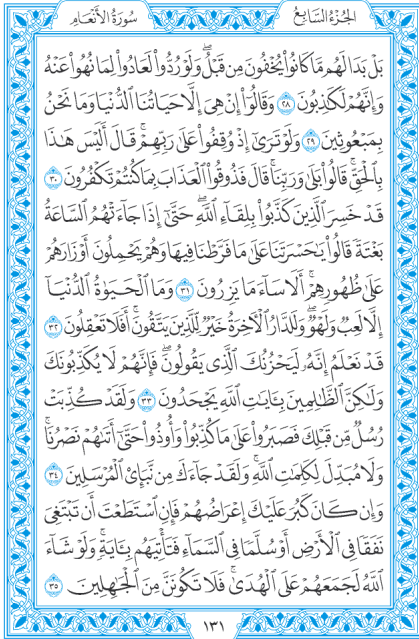 الجُزْءُ السَّابِعُ
سُورَةُ الأَنْعَامِ
بَلْ بَدَا لَهُم مَّا كَانُوا۟ يُخْفُونَ مِن قَبْلُ ۖ وَلَوْ رُدُّوا۟ لَعَادُوا۟ لِمَا نُهُوا۟ عَنْهُ
وَإِنَّهُمْ لَكَـٰذِبُونَ ٢٨ وَقَالُوٓا۟ إِنْ هِىَ إِلَّا حَيَاتُنَا ٱلدُّنْيَا وَمَا نَحْنُ
بِمَبْعُوثِينَ ٢٩ وَلَوْ تَرَىٰٓ إِذْ وُقِفُوا۟ عَلَىٰ رَبِّهِمْ ۚ قَالَ أَلَيْسَ هَـٰذَا
بِٱلْحَقِّ ۚ قَالُوا۟ بَلَىٰ وَرَبِّنَا ۚ قَالَ فَذُوقُوا۟ ٱلْعَذَابَ بِمَا كُنتُمْ تَكْفُرُونَ ٣٠
قَدْ خَسِرَ ٱلَّذِينَ كَذَّبُوا۟ بِلِقَآءِ ٱللَّهِ ۖ حَتَّىٰٓ إِذَا جَآءَتْهُمُ ٱلسَّاعَةُ
بَغْتَةً قَالُوا۟ يَـٰحَسْرَتَنَا عَلَىٰ مَا فَرَّطْنَا فِيهَا وَهُمْ يَحْمِلُونَ أَوْزَارَهُمْ
عَلَىٰ ظُهُورِهِمْ ۚ أَلَا سَآءَ مَا يَزِرُونَ ٣١ وَمَا ٱلْحَيَوٰةُ ٱلدُّنْيَآ
إِلَّا لَعِبٌ وَلَهْوٌ ۖ وَلَلدَّارُ ٱلْـَٔاخِرَةُ خَيْرٌ لِّلَّذِينَ يَتَّقُونَ ۗ أَفَلَا تَعْقِلُونَ ٣٢
قَدْ نَعْلَمُ إِنَّهُۥ لَيَحْزُنُكَ ٱلَّذِى يَقُولُونَ ۖ فَإِنَّهُمْ لَا يُكَذِّبُونَكَ
وَلَـٰكِنَّ ٱلظَّـٰلِمِينَ بِـَٔايَـٰتِ ٱللَّهِ يَجْحَدُونَ ٣٣ وَلَقَدْ كُذِّبَتْ
رُسُلٌ مِّن قَبْلِكَ فَصَبَرُوا۟ عَلَىٰ مَا كُذِّبُوا۟ وَأُوذُوا۟ حَتَّىٰٓ أَتَىٰهُمْ نَصْرُنَا ۚ
وَلَا مُبَدِّلَ لِكَلِمَـٰتِ ٱللَّهِ ۚ وَلَقَدْ جَآءَكَ مِن نَّبَإِى۟ ٱلْمُرْسَلِينَ ٣٤
وَإِن كَانَ كَبُرَ عَلَيْكَ إِعْرَاضُهُمْ فَإِنِ ٱسْتَطَعْتَ أَن تَبْتَغِىَ
نَفَقًا فِى ٱلْأَرْضِ أَوْ سُلَّمًا فِى ٱلسَّمَآءِ فَتَأْتِيَهُم بِـَٔايَةٍ ۚ وَلَوْ شَآءَ
ٱللَّهُ لَجَمَعَهُمْ عَلَى ٱلْهُدَىٰ ۚ فَلَا تَكُونَنَّ مِنَ ٱلْجَـٰهِلِينَ ٣٥
١٣١